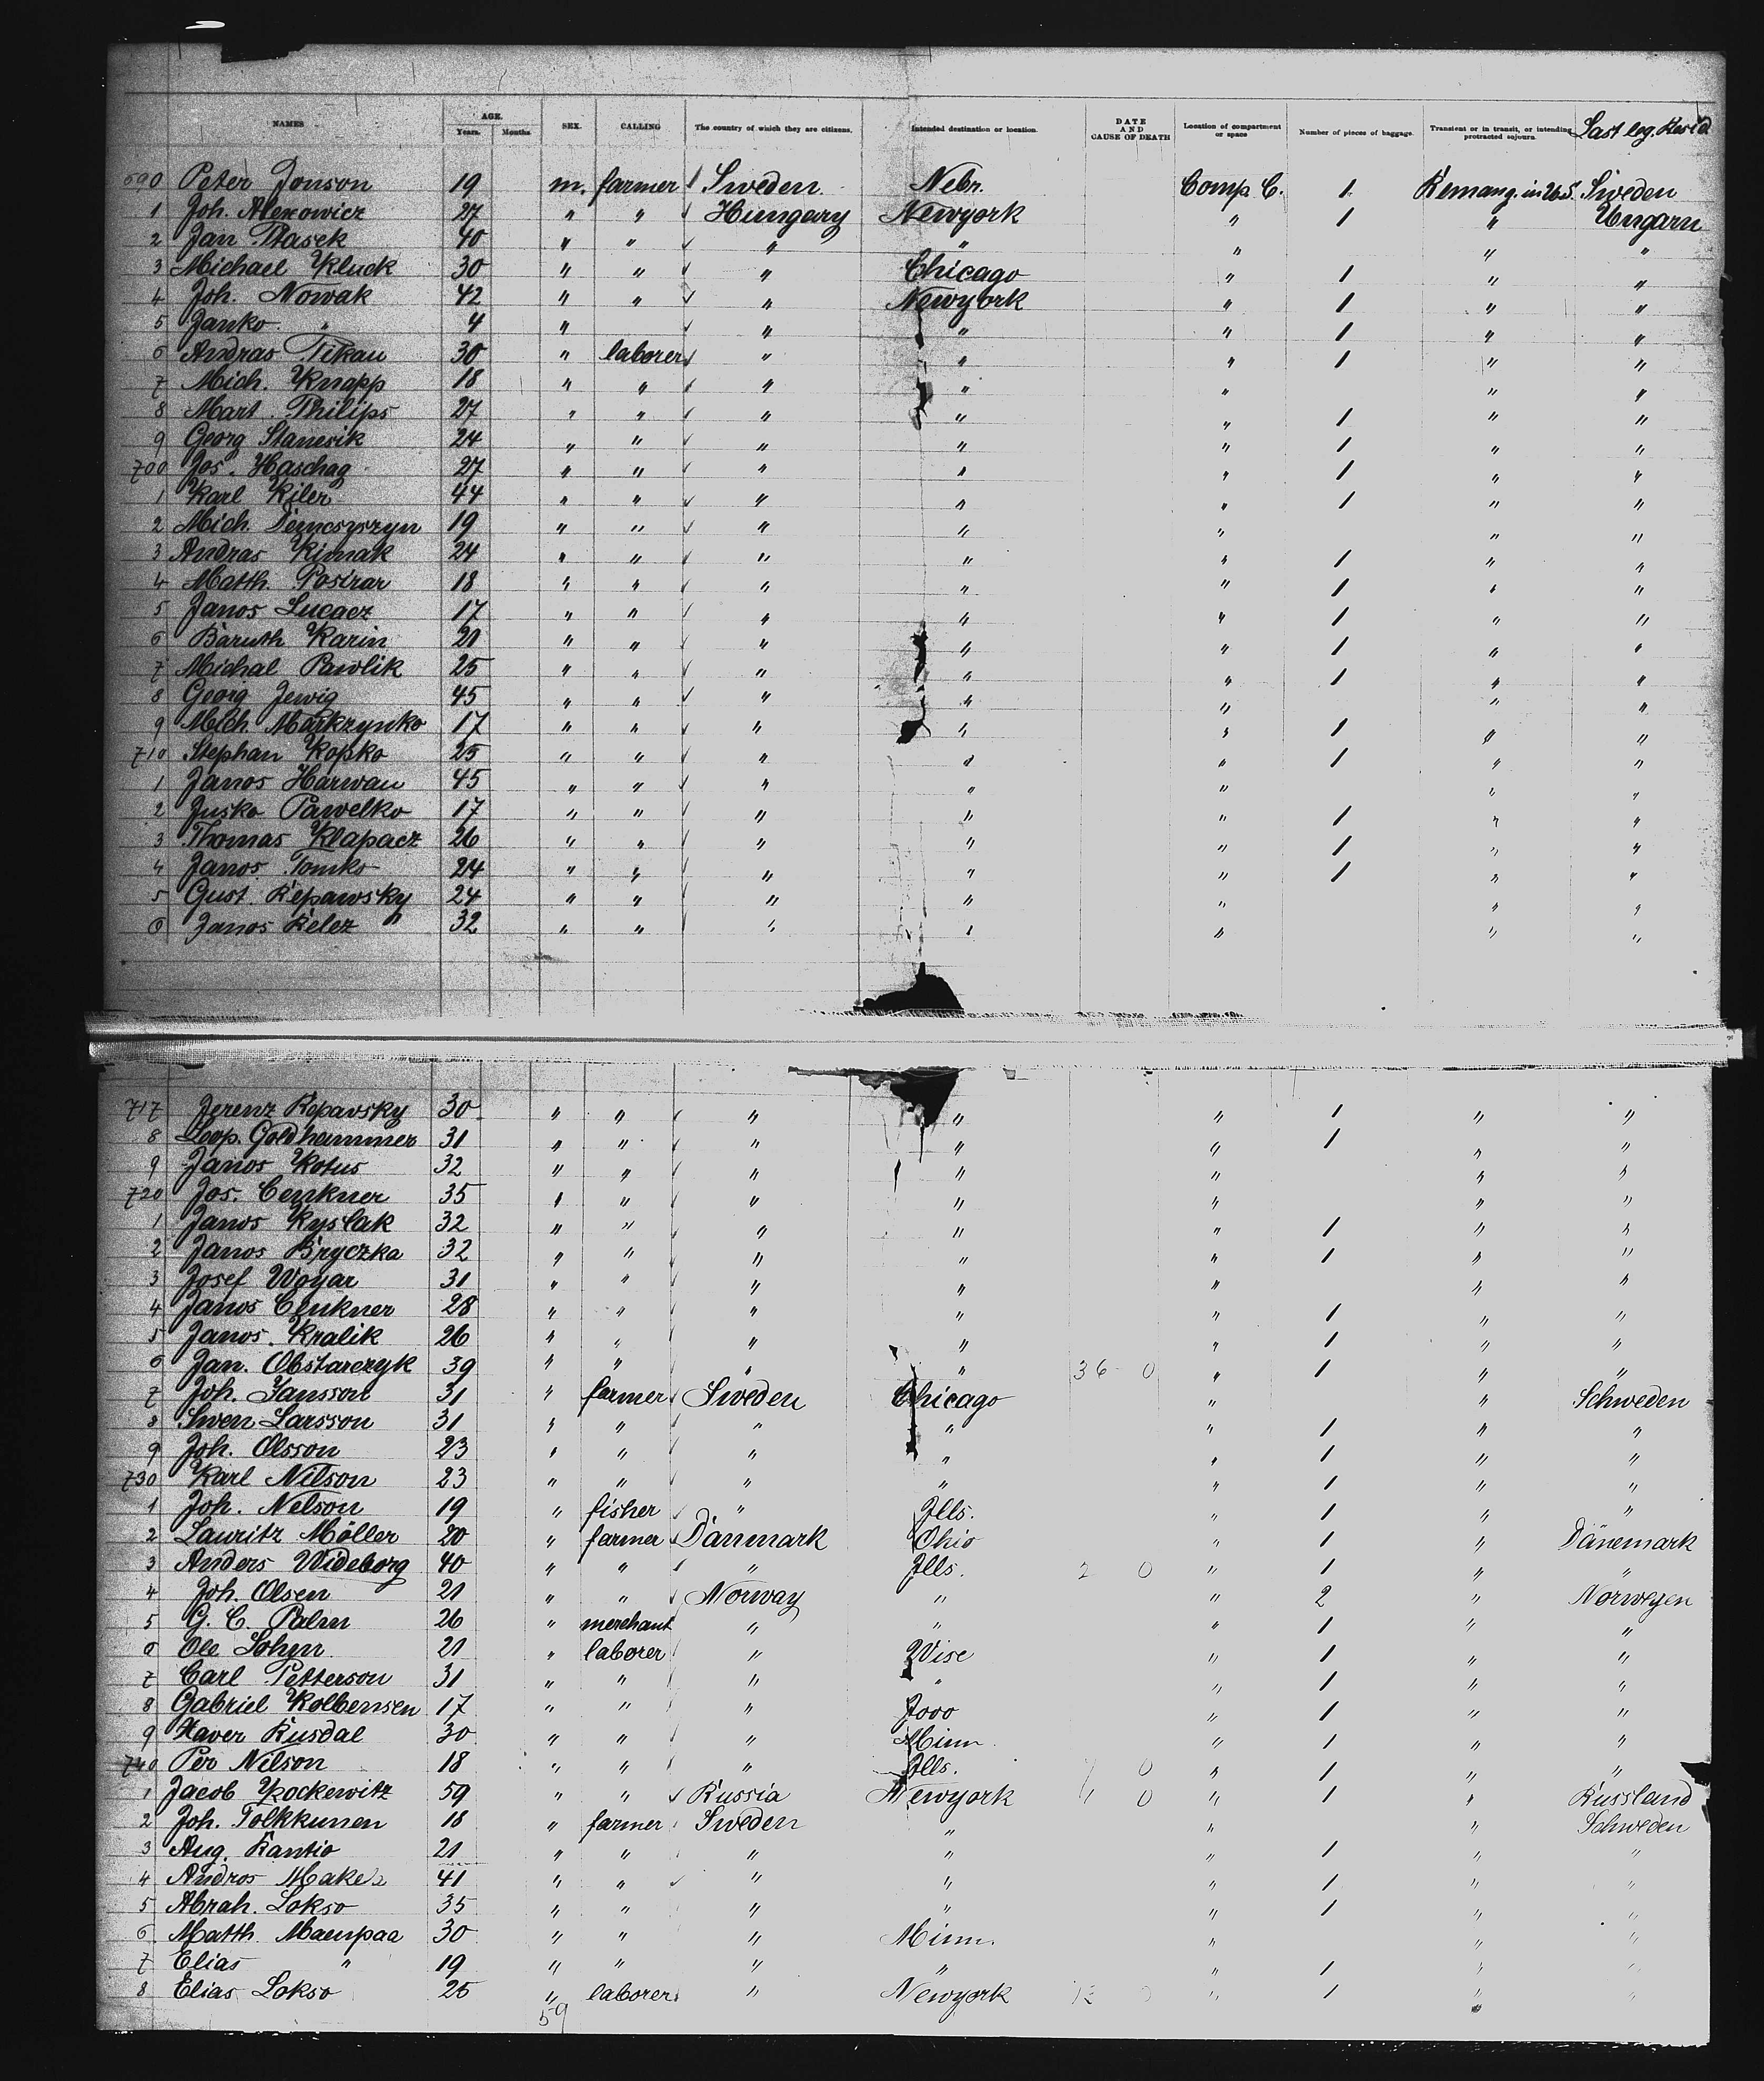 NAMES AGE. Years. Months. SEX. CALLING The country of which they are citizens. Intended destination or location. DATE AND CAUSE OF DEATH Location of compartment or space Number of pieces of baggage. Transient or in transit, or intending protracted sojourn. Last leg. Resid.
690 Peter Jonson 19 m. farmer Sweden Nebr. Comp C. 1 Remang. in U.S. Sweden
1 Joh. Alexowicz 27 " " Hungary Newyork " 1 " Ungarn
2 Jan Ptasek 40 " " " " " " "
3 Michael Kluck 30 " " " Chicago " 1 " "
4 Joh. Nowak 42 " " " Newyork " 1 " "
5 Janko " 4 " " " " 1 " "
6 Andras Tikau 30 " laborer " " " 1 " "
7 Mich. Knapp 18 " " " " " " "
8 Mart. Philips 27 " " " " " 1 " "
9 Georg Stanesik 24 " " " " " 1 " "
700 Jos. Haschag 27 " " " " " 1 " "
1 Karl Kiler 44 " " " " " 1 " "
2 Mich. 19 " " " " " " "
3 Andras Kimak 24 " " " " " 1 " "
4 Matth. Posirar 18 " " " " " 1 " "
5 Janos Lucacz 17 " " " " " 1 " "
6 Baruth Karin 21 " " " " " 1 " "
7 Michal Pawlik 25 " " " " " 1 " "
8 Georg Jewig 45 " " " " " " "
9 Mich. Markzynko 17 " " " " " 1 " "
710 Stephan Kopko 25 " " " " " 1 " "
1 Janos Harwan 45 " " " " " " "
2 Jusko Pawelko 17 " " " " " 1 " "
3 Thomas Klapacz 26 " " " " " 1 " "
4 Janos Tomko 24 " " " " " 1 " "
5 Gust. Repawsky 24 " " " " " " "
6 Janos Relez 32 " " " " " " "
717 Ferenz Repavsky 30 " " " " " 1 " "
8 Leop. Goldhammer 31 " " " " " 1 " "
9 Janos Kotus 32 " " " " " " "
720 Jos. Cenkner 35 " " " " " " "
1 Janos Kyslak 32 " " " " " 1 " "
2 Janos Bryczka 32 " " " " " 1 " "
3 Josef Woyar 31 " " " " " " "
4 Janos Cenkner 28 " " " " " 1 " "
5 Janos Kralik 26 " " " " " 1 " "
6 Jan. Obstarczyk 39 " " " " 36 0 " 1 " "
7 Joh. Jansson 31 " farmer Sweden Chicago " " Schweden
8 Swen Larsson 31 " " " " " 1 " "
9 Joh. Olsson 23 " " " " " 1 " "
730 Karl Nilson 23 " " " " " 1 " "
1 Joh. Nelson 19 " fisher " Ills. " 1 " "
2 Lauritz Möller 20 " farmer Danmark Ohio " 1 " Dänemark
3 Anders Wideborg 40 " " " Ills. 2 0 " 1 " "
4 Joh. Olsen 21 " " Norway " " 2 " Norwegen
5 G. C. Palm 26 " merchant " " " 1 " "
6 Ole Sohyn 21 " laborer " Wisc " 1 " "
7 Carl Petterson 31 " " " " " 1 " "
8 Gabriel Kolbensen 17 " " " Jovo " 1 " "
9 Haver Rusdal 30 " " " Minn. " 1 " "
740 Per Nilson 18 " " " Ills. 7 0 " 1 " "
1 Jacob Kockewitz 59 " " Russia Newyork 1 0 " 1 " Russland
2 Joh. Tolkkunen 18 " farmer Sweden " " " Schweden
3 Aug. Rantio 21 " " " " " 1 " "
4 Andros Makela 41 " " " " " 1 " "
5 Abrah. Lokso 35 " " " " " 1 " "
6 Matth. Maenpaa 30 " " " Minn. " " "
7 Elias " 19 " " " " " 1 " "
8 Elias Lokso 25 " laborer " Newyork " 1 " "
59